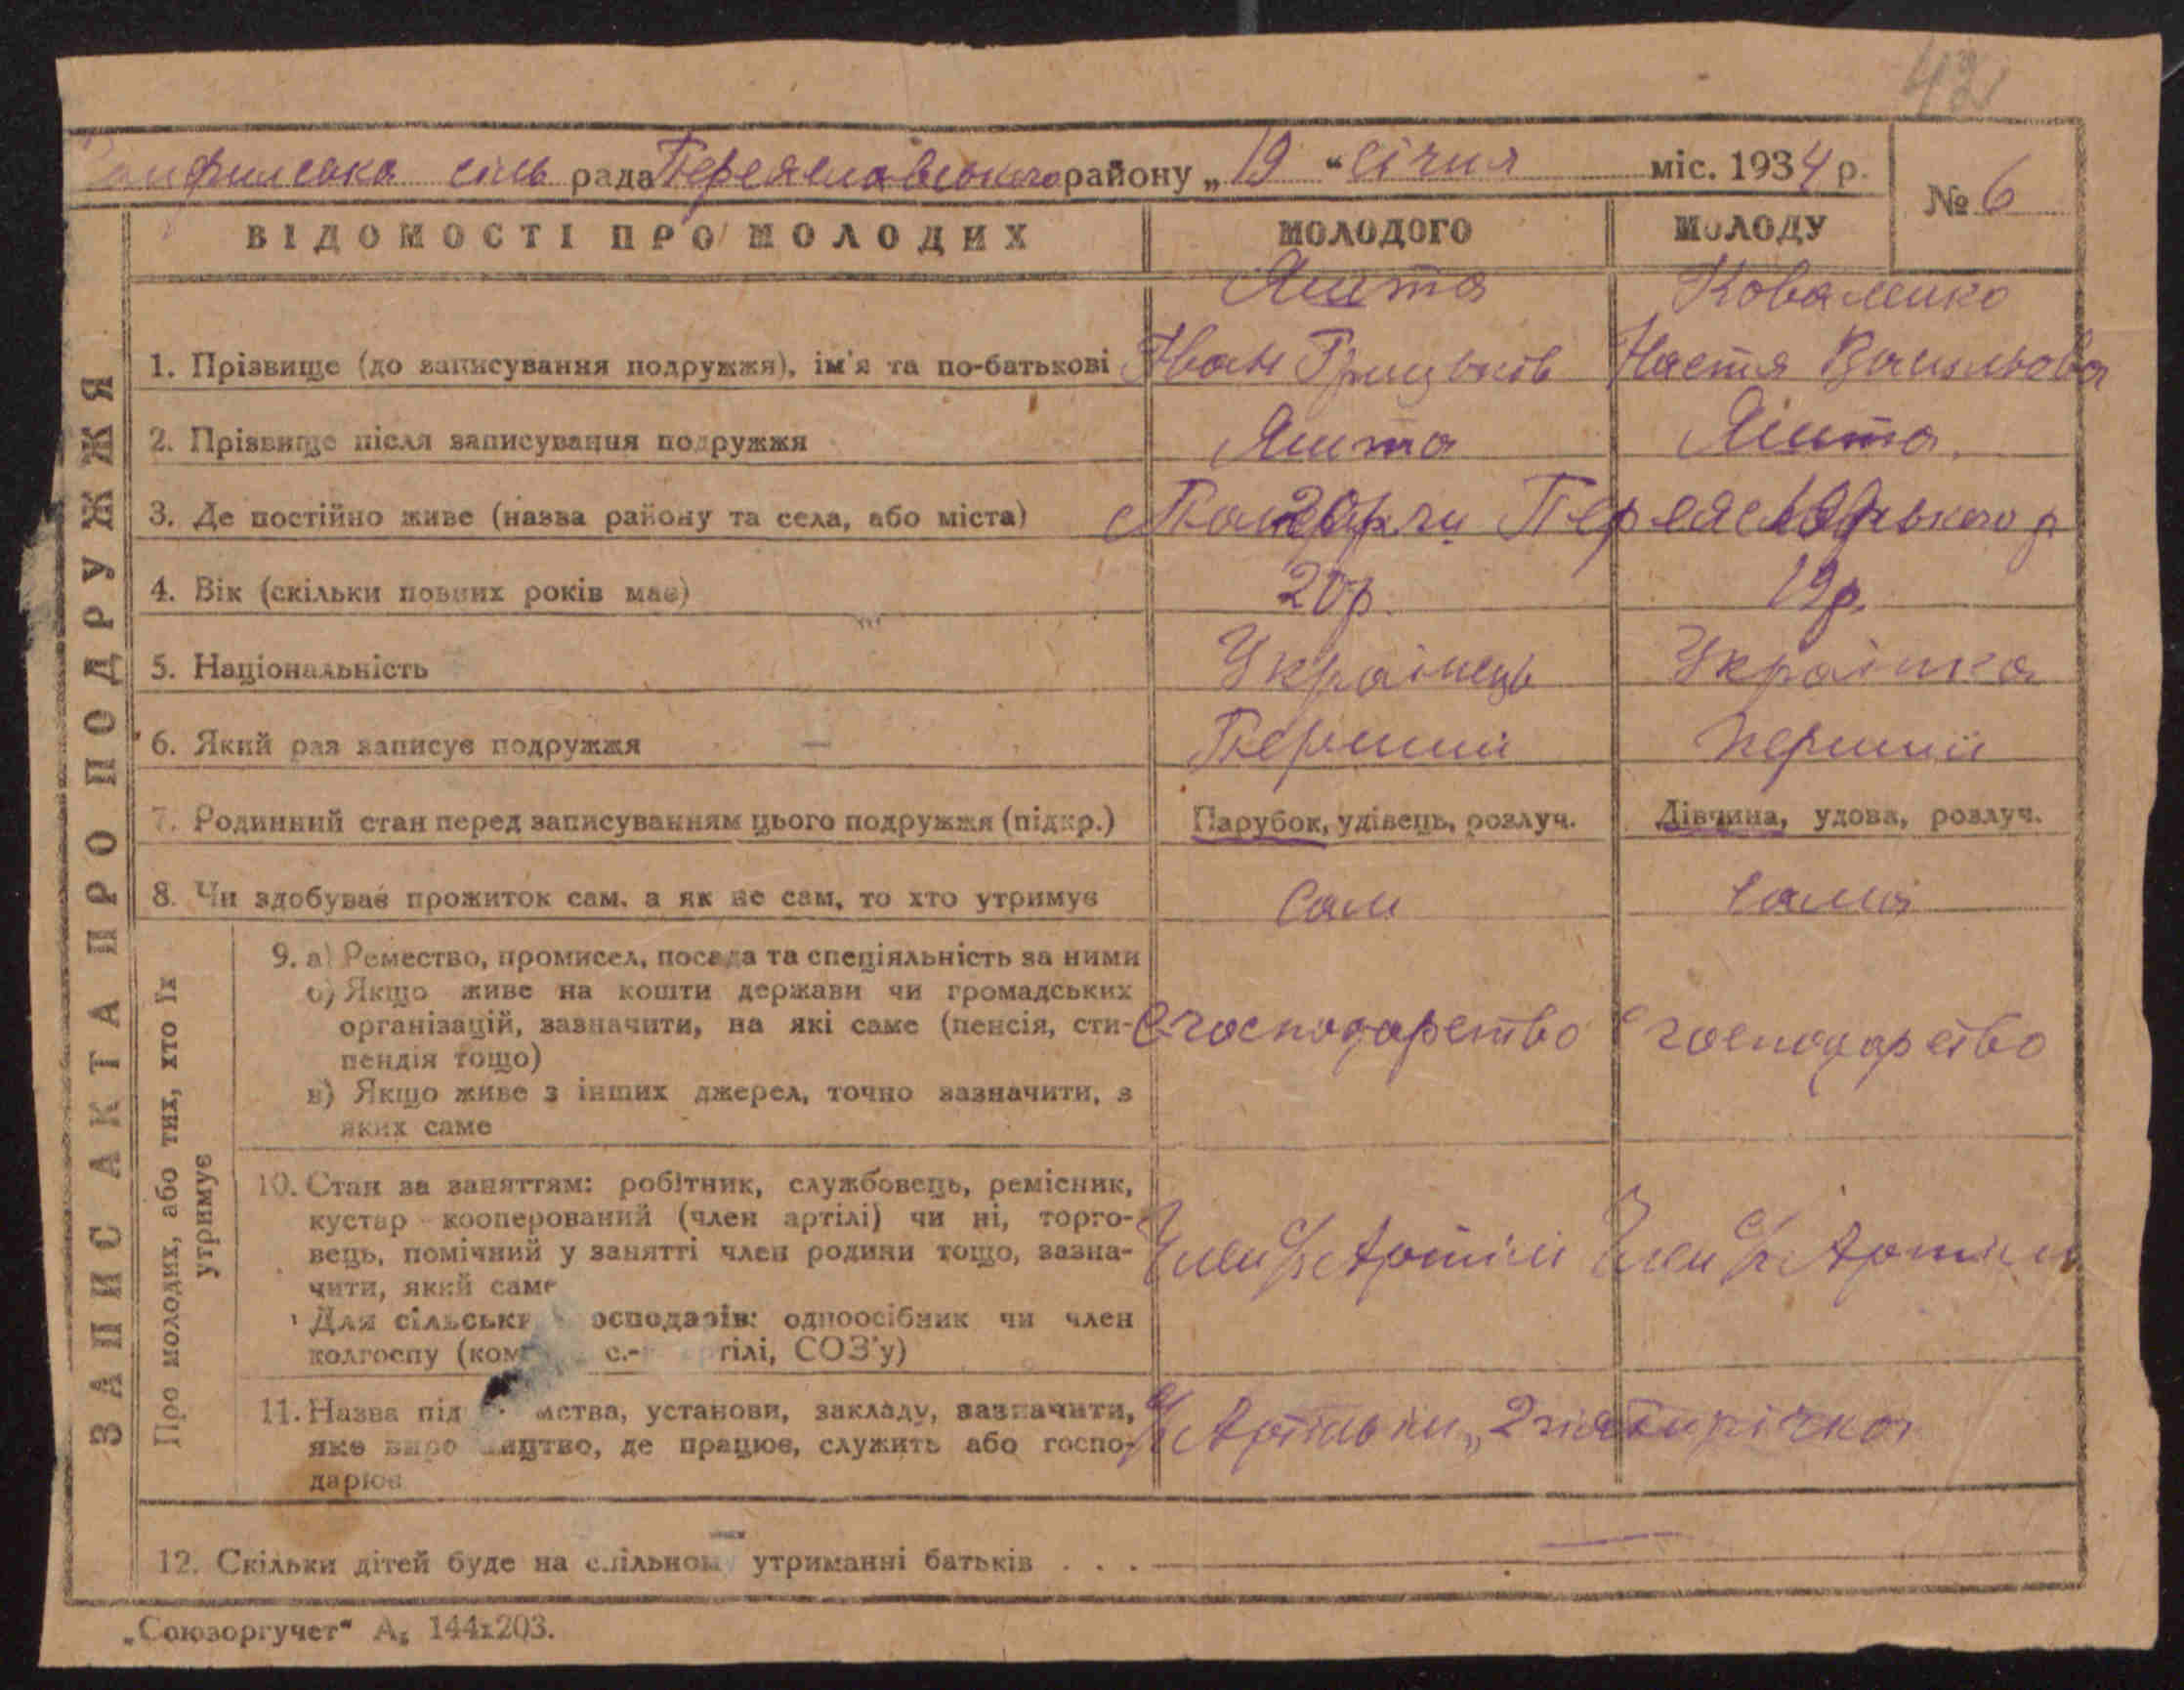 42
сіль рада Переяславського району „19“ січня міс. 1934 р.
№ 6
ВІДОМОСТІ ПРО МОЛОДИХ
МОЛОДОГО
МОЛОДУ
ЗАПИС АКТА ПРО ПОДРУЖЖЯ
Коваленко
1. Прізвище (до записування подружжя), ім'я та по-батькові
Іван Грицьків
Настя Васильова
2. Прізвище після записування подружжя
3. Де постійно живе (назва району та села, або міста)
Переяславського р
4. Вік (скільки повних років має)
20р.
19р.
5. Національність
Українець
Українка
6. Який раз записує подружжя
Перший
перший
7. Родинний стан перед записуванням цього подружжя (підкр.)
Парубок, удівець, розлуч.
Дівчина, удова, розлуч.
8. Чи здобуває прожиток сам, а як не сам, то хто утримує
Сам
Сама
Про молодих, або тих, хто їх утримує
9. а) Ремество, промисел, посада та спеціяльність за ними
б) Якщо живе на кошти держави чи громадських
організацій, зазначити, на які саме (пенсія, сти-
пендія тощо)
в) Якщо живе з інших джерел, точно зазначити, з
яких саме
С господарство
С господарство
10. Стан за заняттям: робітник, службовець, ремісник,
кустар кооперований (член артілі) чи ні, торго-
вець, помічний у занятті член родини тощо, зазна-
чити, який саме
Для сільськ осподарів: одноосібник чи член
колгоспу (ком с.- тілі, СОЗ'у)
Член с/г Артілі
Член с/г Артілі
11. Назва під мства, установи, закладу, зазначити,
яке виро ництво, де працює, служить або госпо-
дарює
с/г Артільни „2 пятирічка
12. Скільки дітей буде на спільному утриманні батьків . . .
„Союзоргучет“ А₅ 144х203.